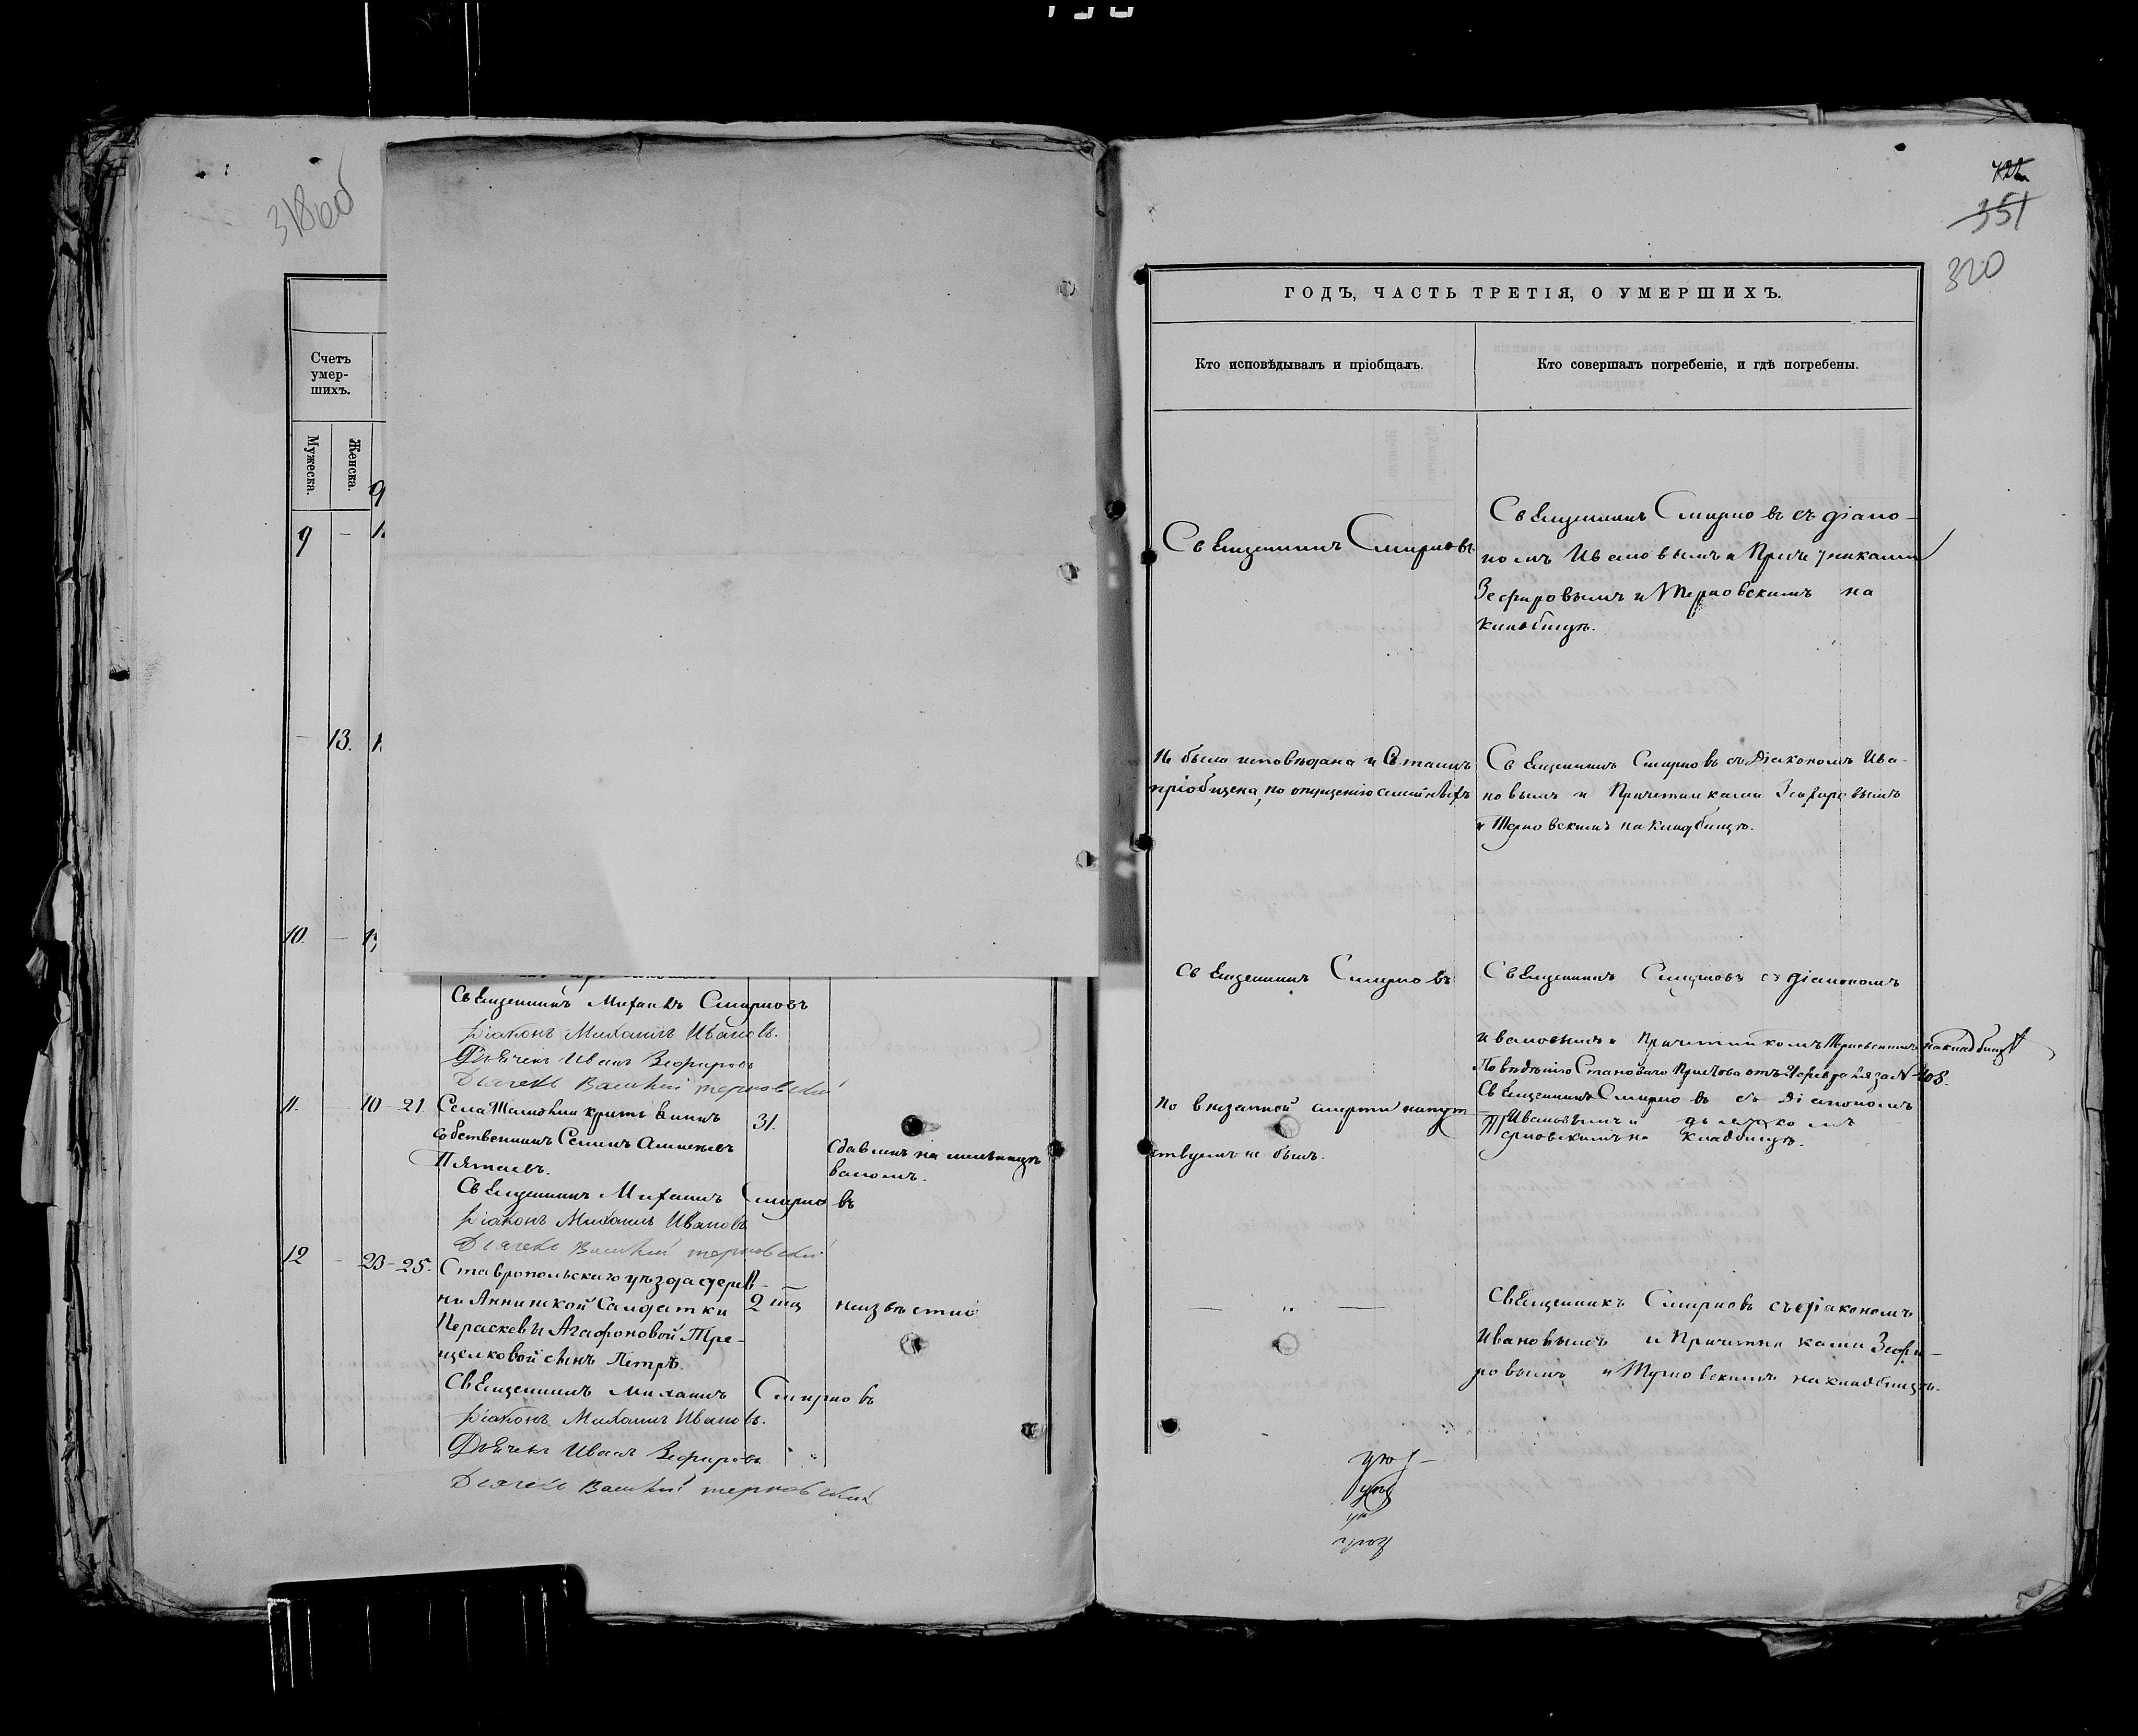 318 об
Счетъ
умер-
шихъ.
Мужеска.
Женска.
9 -
- 13.
10. -
Священникъ Михаилъ Смирновъ
Діаконъ Михаилъ Ивановъ.
Дьячекъ Иванъ Зефировъ
Дьячекъ Василій Терновскій
11. - 10 - 21. Села
крестьянинъ 31.
собственникъ Семенъ
Сдавленъ на мельницѣ
Пятаевъ.
валомъ.
Священникъ Михаилъ Смирновъ
Діаконъ Михаилъ Ивановъ
Дьячекъ Василій Терновскій
12 - 23 - 25. Ставропольскаго уѣзда дерев-
ни Аннинской Салдатки 2 неизвѣстно
Параскевы Агафоновой Тре-
щелковой сынъ Петръ.
Священникъ Михаилъ Смирновъ
Діаконъ Михаилъ Ивановъ.
Дьячекъ Иванъ Зефировъ
Дьячекъ Василій Терновскій
351
320
ГОДЪ, ЧАСТЬ ТРЕТІЯ, О УМЕРШИХЪ.
Кто исповѣдывалъ и пріобщалъ.
Кто совершалъ погребеніе, и гдѣ погребены.
Священникъ Смирновъ
Священникъ Смирновъ съ діако-
номъ Ивановымъ и Причетниками
Зефировымъ и Терновскимъ на
кладбищѣ.
Не была исповѣдана и Св. таинъ
пріобщена, по опущенію семейныхъ
Священникъ Смирновъ съ Діакономъ Ива-
новымъ и Причетниками Зефировымъ
и Терновскимъ на кладбищѣ.
Священникъ Смирновъ
Священникъ Смирновъ съ діакономъ
Ивановымъ и Причетникомъ Терновскимъ на кладбищѣ
По внезапной смерти напут-
ствуемъ не былъ.
По вѣденію Становаго Пристава отъ Февраля за № 408.
Священникъ Смирновъ съ Діакономъ
Ивановымъ и дьячкомъ
Терновскимъ на кладбищѣ.
— " —
Священникъ Смирновъ съ діакономъ
Ивановымъ и Причетниками Зефи-
ровымъ и Терновскимъ на кладбищѣ.